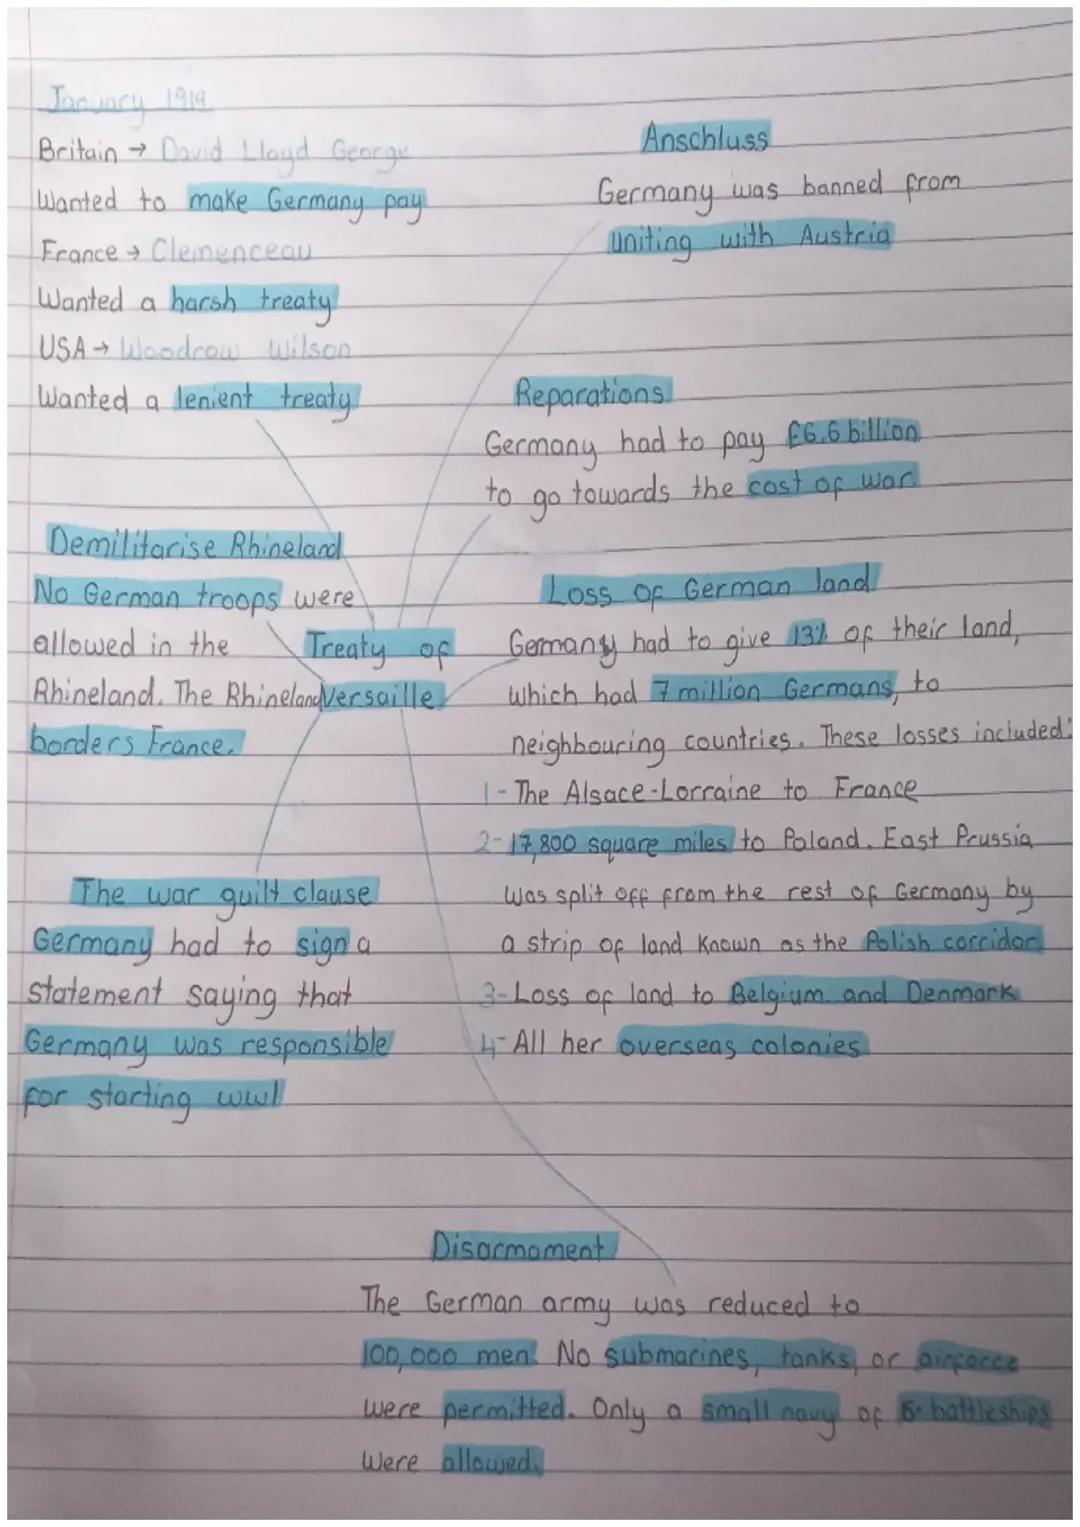 January 1919
Britain → David Lloyd George
Wanted to make Germany pay
France → Clemenceau
Wanted a harsh treaty
USA → Woodrow Wilson
Wanted a lenient treaty
Anschluss
Germany was banned from
uniting with Austria
Reparations
Germany had to pay £6.6 billion
to go towards the cost of war
Demilitarise Rhineland
No German troops were
allowed in the
Rhineland. The Rhineland
borders France.
Treaty of
Versaille
Loss of German land
Germany had to give 13% of their land,
which had 7 million Germans, to
neighbouring countries. These losses included:
1- The Alsace-Lorraine to France
2- 17,800 square miles to Poland. East Prussia
was split off from the rest of Germany by
a strip of land known as the Polish corridor
3- Loss of land to Belgium and Denmark
4- All her overseas colonies
The war guilt clause
Germany had to sign a
statement saying that
Germany was responsible
for starting ww1
Disarmament
The German army was reduced to
100,000 men. No submarines, tanks, or airforce
were permitted. Only a small navy of 6 battleships
were allowed.